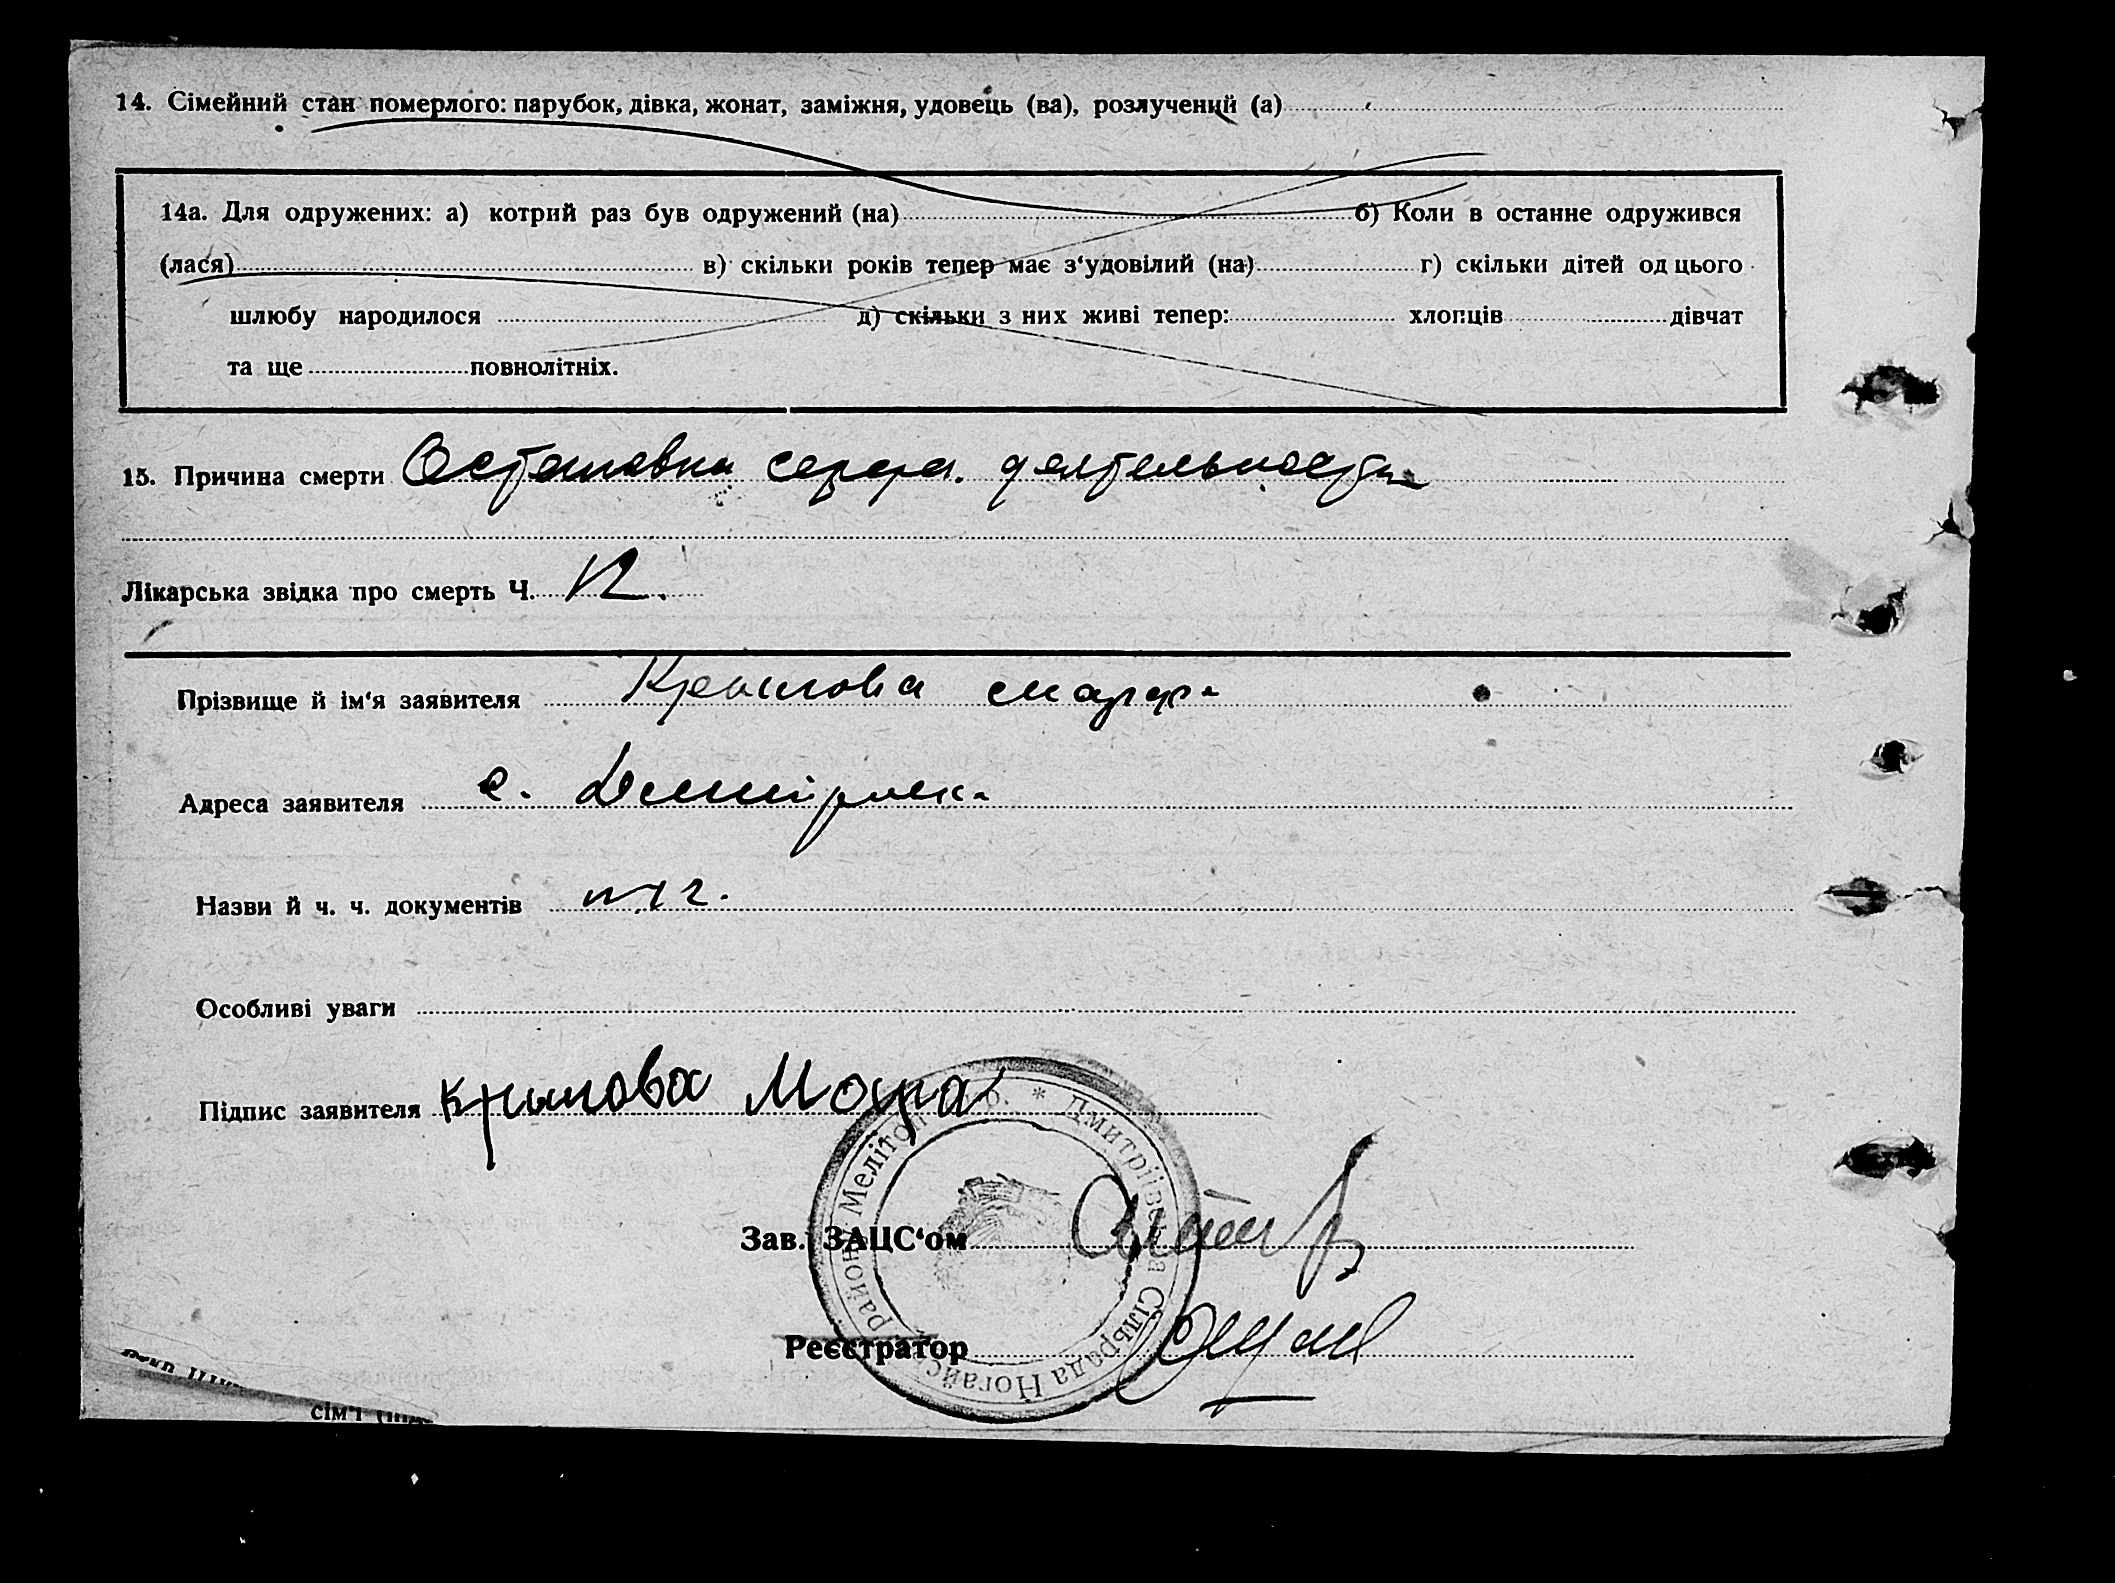 14. Сімейний стан померлого: парубок, дівка, жонат, заміжня, удовець (ва), розлучений (а)
14а. Для одружених: а) котрий раз був одружений (на) б) Коли в останнє одружився
(лася) в) скільки років тепер має з‘удовілий (на) г) скільки дітей од цього
шлюбу народилося д) скільки з них живі тепер: хлопців дівчат
та ще повнолітніх.
15. Причина смерти Остановка серд. деятельности
Лікарська звідка про смерть Ч. 12.
Прізвище й ім‘я заявителя Крылова
Адреса заявителя с.
Назви й ч. ч. документів
Особливі уваги
Підпис заявителя Крылова
* Дмитріівська Сільрада Ногайс району Меліто
Зав. ЗАЦС‘ом
Реєстратор
сім'ї